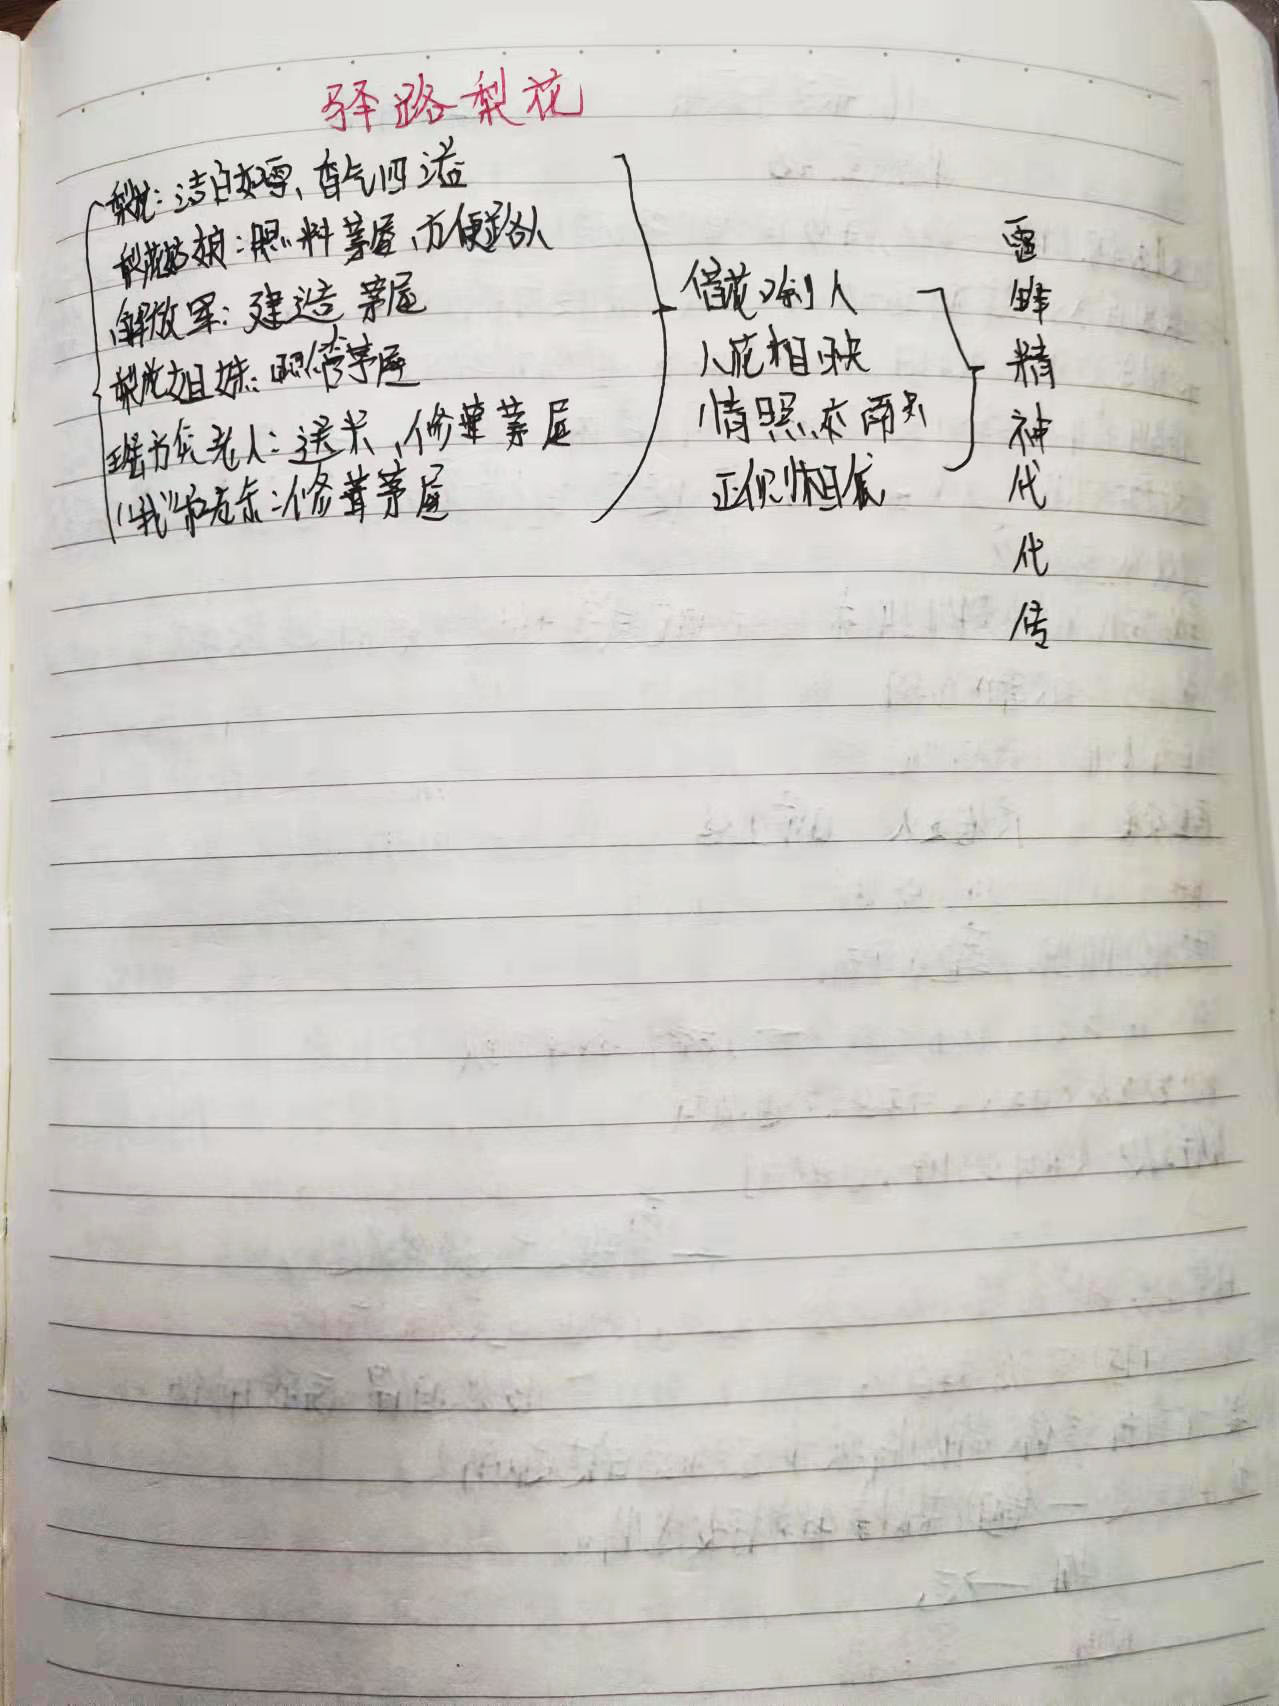 驿路梨花
梨花:洁白如雪、香气四溢
梨花姑娘:照料茅屋、方便路人
解放军:建造茅屋
梨花姐妹:照管茅屋
瑶族老人:送米、修葺茅屋
“我”和老余:修葺茅屋
借花喻人
人花相映
情景交融
正侧相依
雷
锋
精
神
代
代
传